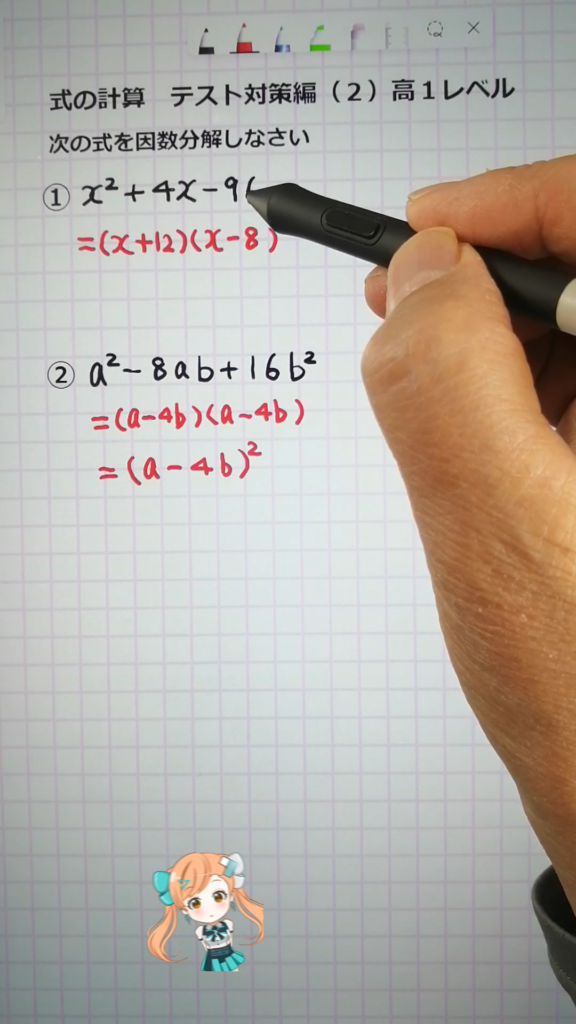 式の計算 テスト対策編(2)高1レベル
次の式を因数分解しなさい
① x²+4x-9
=(x+12)(x-8)
② a²-8ab+16b²
=(a-4b)(a-4b)
=(a-4b)²